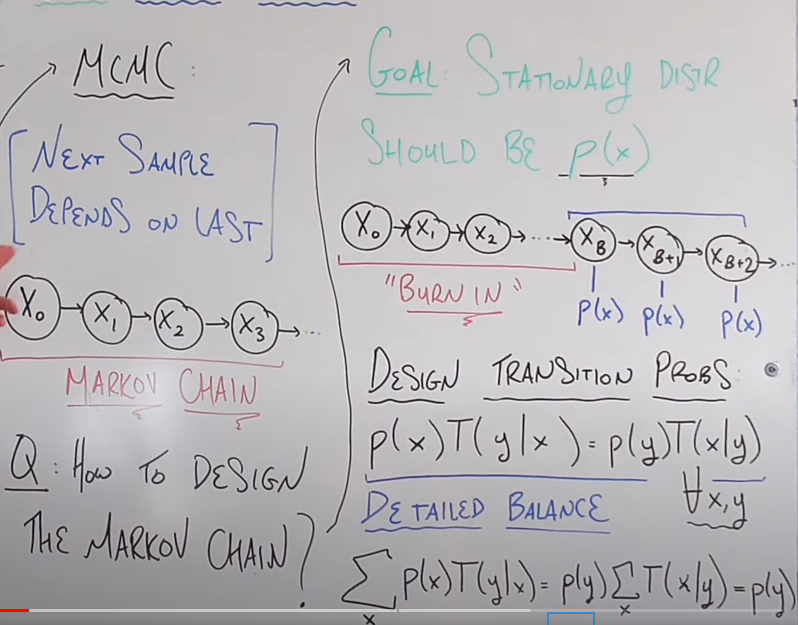 MCMC:
[NEXT SAMPLE
DEPENDS ON LAST]
X₀ → X₁ → X₂ → X₃ → ...
MARKOV CHAIN
Q: HOW TO DESIGN
THE MARKOV CHAIN?
GOAL: STATIONARY DISTR
SHOULD BE p(x)
X₀ → X₁ → X₂ → ... → X_B → X_B+1 → X_B+2 → ...
"BURN IN"
p(x) p(x) p(x)
DESIGN TRANSITION PROBS:
p(x)T(y|x) = p(y)T(x|y)
DETAILED BALANCE ∀x,y
∑_x p(x)T(y|x) = p(y)∑_x T(x|y) = p(y)